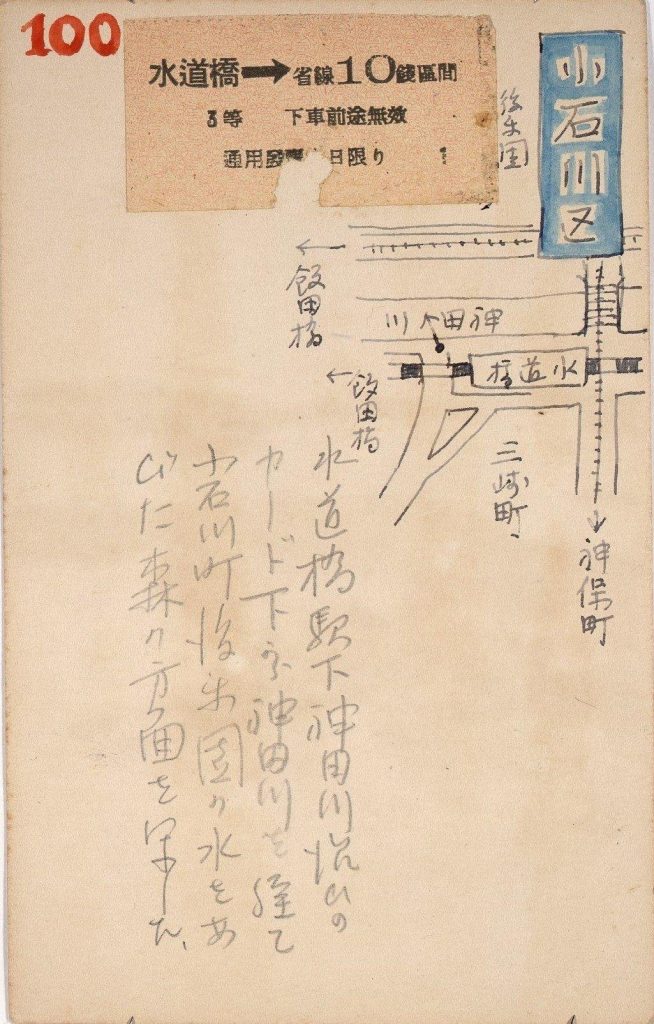 100
水道橋→省線10錢區間
3等 下車前途無效
通用發 日限り 1
小石川区
後楽園
←飯田橋
神田川
←飯田橋
水道橋
三崎町
→神保町
水道橋駅下神田川沿ひの
カード下から神田川を経て
小石川町後楽園の水をあ
びた森の方面を